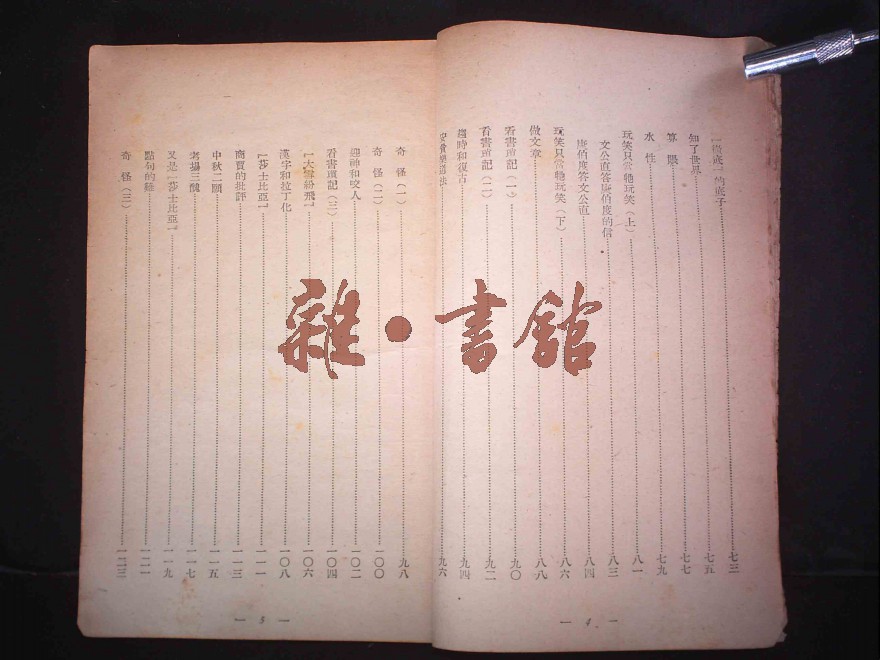 「徹底」的底子 七三
知了世界 七五
算賬 七七
水性 七九
玩笑只當牠玩笑（上） 八一
文公直答康伯度的信 八三
康伯度答文公直 八四
玩笑只當牠玩笑（下） 八六
做文章 八八
看書瑣記（一） 九〇
看書瑣記（二） 九二
趨時和復古 九四
安貧樂道法 九六
— 4 —
奇怪（一） 九八
奇怪（二） 一〇〇
迎神和咬人 一〇二
看書瑣記（三） 一〇四
「大雪紛飛」 一〇六
漢字和拉丁化 一〇八
「莎士比亞」 一一一
商賈的批評 一一三
中秋二願 一一五
考場三醜 一一七
又是「莎士比亞」 一一九
點句的難 一二一
奇怪（三） 一二三
— 5 —
雜·書館